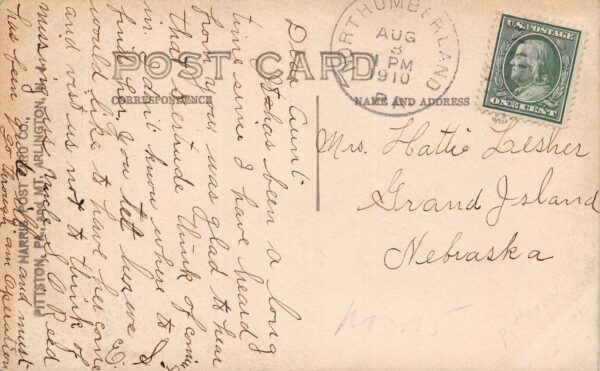 POST CARD
CORRESPONDENCE
NAME AND ADDRESS
NORTHUMBERLAND
AUG
3
1 PM
1910
PA.
U.S. POSTAGE
ONE CENT
Mrs. Hattie Lesher
Grand Island
Nebraska
Dear Aunt
It has been a long
time since I have heard
from you was glad to hear
that Gertrude think of coming
in. I don't know where to
find her, you let her we
would like to have her come
and visit us not to think of
missing us. Uncle S. O. Reed
has been and must
go through an Operation
HARRIS POST CARD CO.,
PITTSTON, PA. and MT. ARLINGTON, N. J.